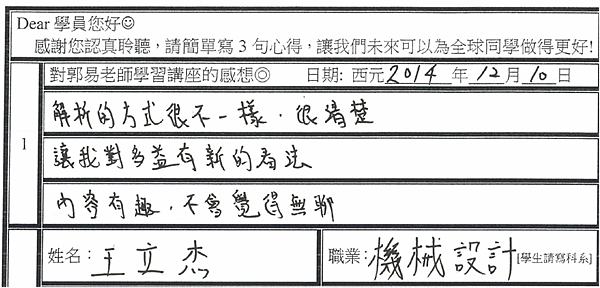 Dear 學員您好☺
感謝您認真聆聽，請簡單寫 3 句心得，讓我們未來可以為全球同學做得更好!
1 對郭易老師學習講座的感想◎ 日期: 西元 2014 年 12 月 10 日
解析的方式很不一樣．很清楚
讓我對多益有新的看法
內容有趣．不會覺得無聊
姓名： 王立杰 職業： 機械設計 [學生請寫科系]